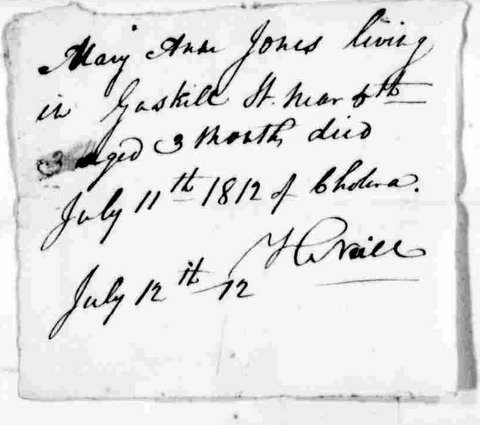 Mary Ann Jones living
in Gaskill St. near 5th
aged 3 Month, died
July 11th 1812 of Cholera.
H Neill
July 12th 12